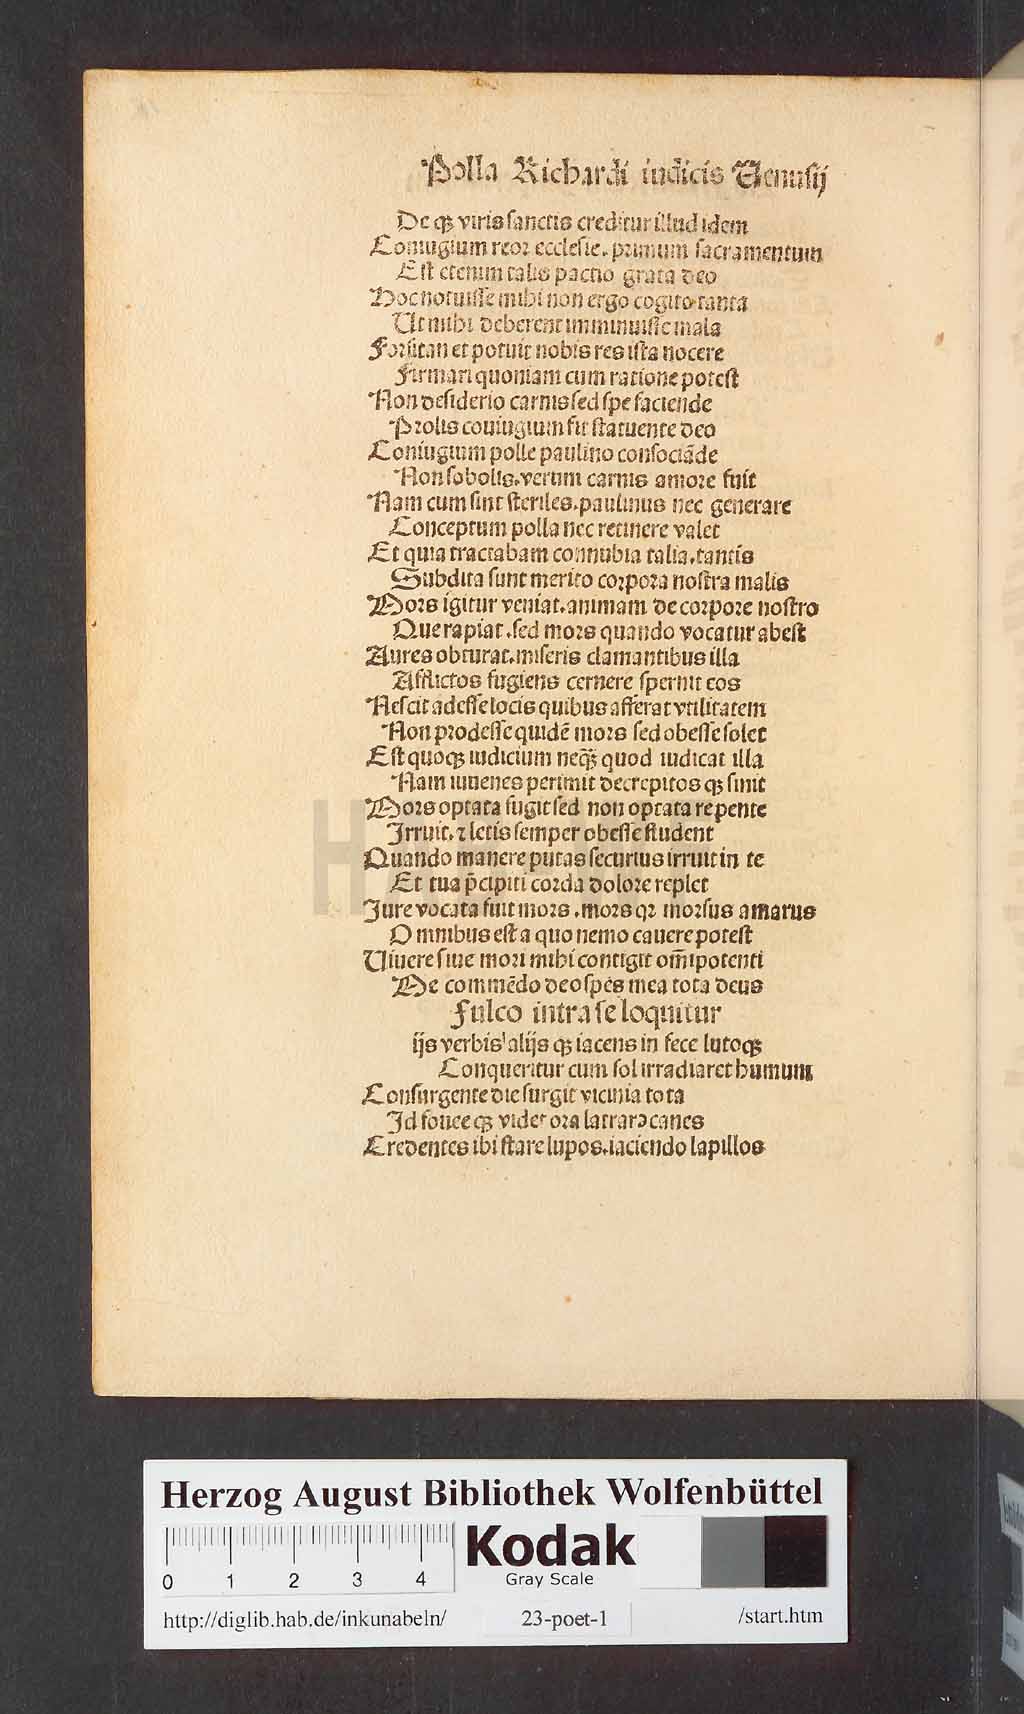 Polla Richardi iudicis Uenusij
De qꝫ viris sanctis creditur illud idem
Coniugium reor ecclesie. primum sacramentum
Est etenim talis pactio grata deo
Hoc notuisse mihi non ergo cogito tanta
Ut mihi deberent imminuisse mala
Forsitan et potuit nobis res ista nocere
Firmari quoniam cum ratione potest
Non desiderio carnis sed spe faciende
Prolis coniugium fit statuente deo
Coniugium polle paulino consociāde
Non sobolis. verum carnis amore fuit
Nam cum sint steriles. paulinus nec generare
Conceptum polla nec retinere valet
Et quia tractabam connubia talia. tantis
Subdita sunt merito corpora nostra malis
Mors igitur veniat. animam de corpore nostro
Que rapiat. sed mors quando vocatur abest
Aures obturat. miseris clamantibus illa
Afflictos fugiens cernere spernit eos
Nescit adesse locis quibus afferat vtilitatem
Non prodesse quidē mors sed obesse solet
Est quoqꝫ iudicium neqꝫ̄ quod iudicat illa
Nam iuuenes perimit decrepitos qꝫ sinit
Mors optata fugit sed non optata repente
Irruit. ⁊ letis semper obesse student
Quando manere putas securius irruit in te
Et tua p̄cipiti corda dolore replet
Jure vocata fuit mors. mors qꝛ morsus amarus
Omnibus est a quo nemo cauere potest
Uiuere siue mori mihi contigit om̄ipotenti
Me commēdo deo spes mea tota deus
Fulco intra se loquitur
ijs verbis alijs qꝫ iacens in fece lutoqꝫ
Conqueritur cum sol irradiaret humum
Consurgente die surgit vicinia tota
Id fouee qꝫ videt ora latrare canes
Credentes ibi stare lupos. iaciendo lapillos
HAB
Herzog August Bibliothek Wolfenbüttel
0 1 2 3 4
Kodak
Gray Scale
http://diglib.hab.de/inkunabeln/ 23-poet-1 /start.htm